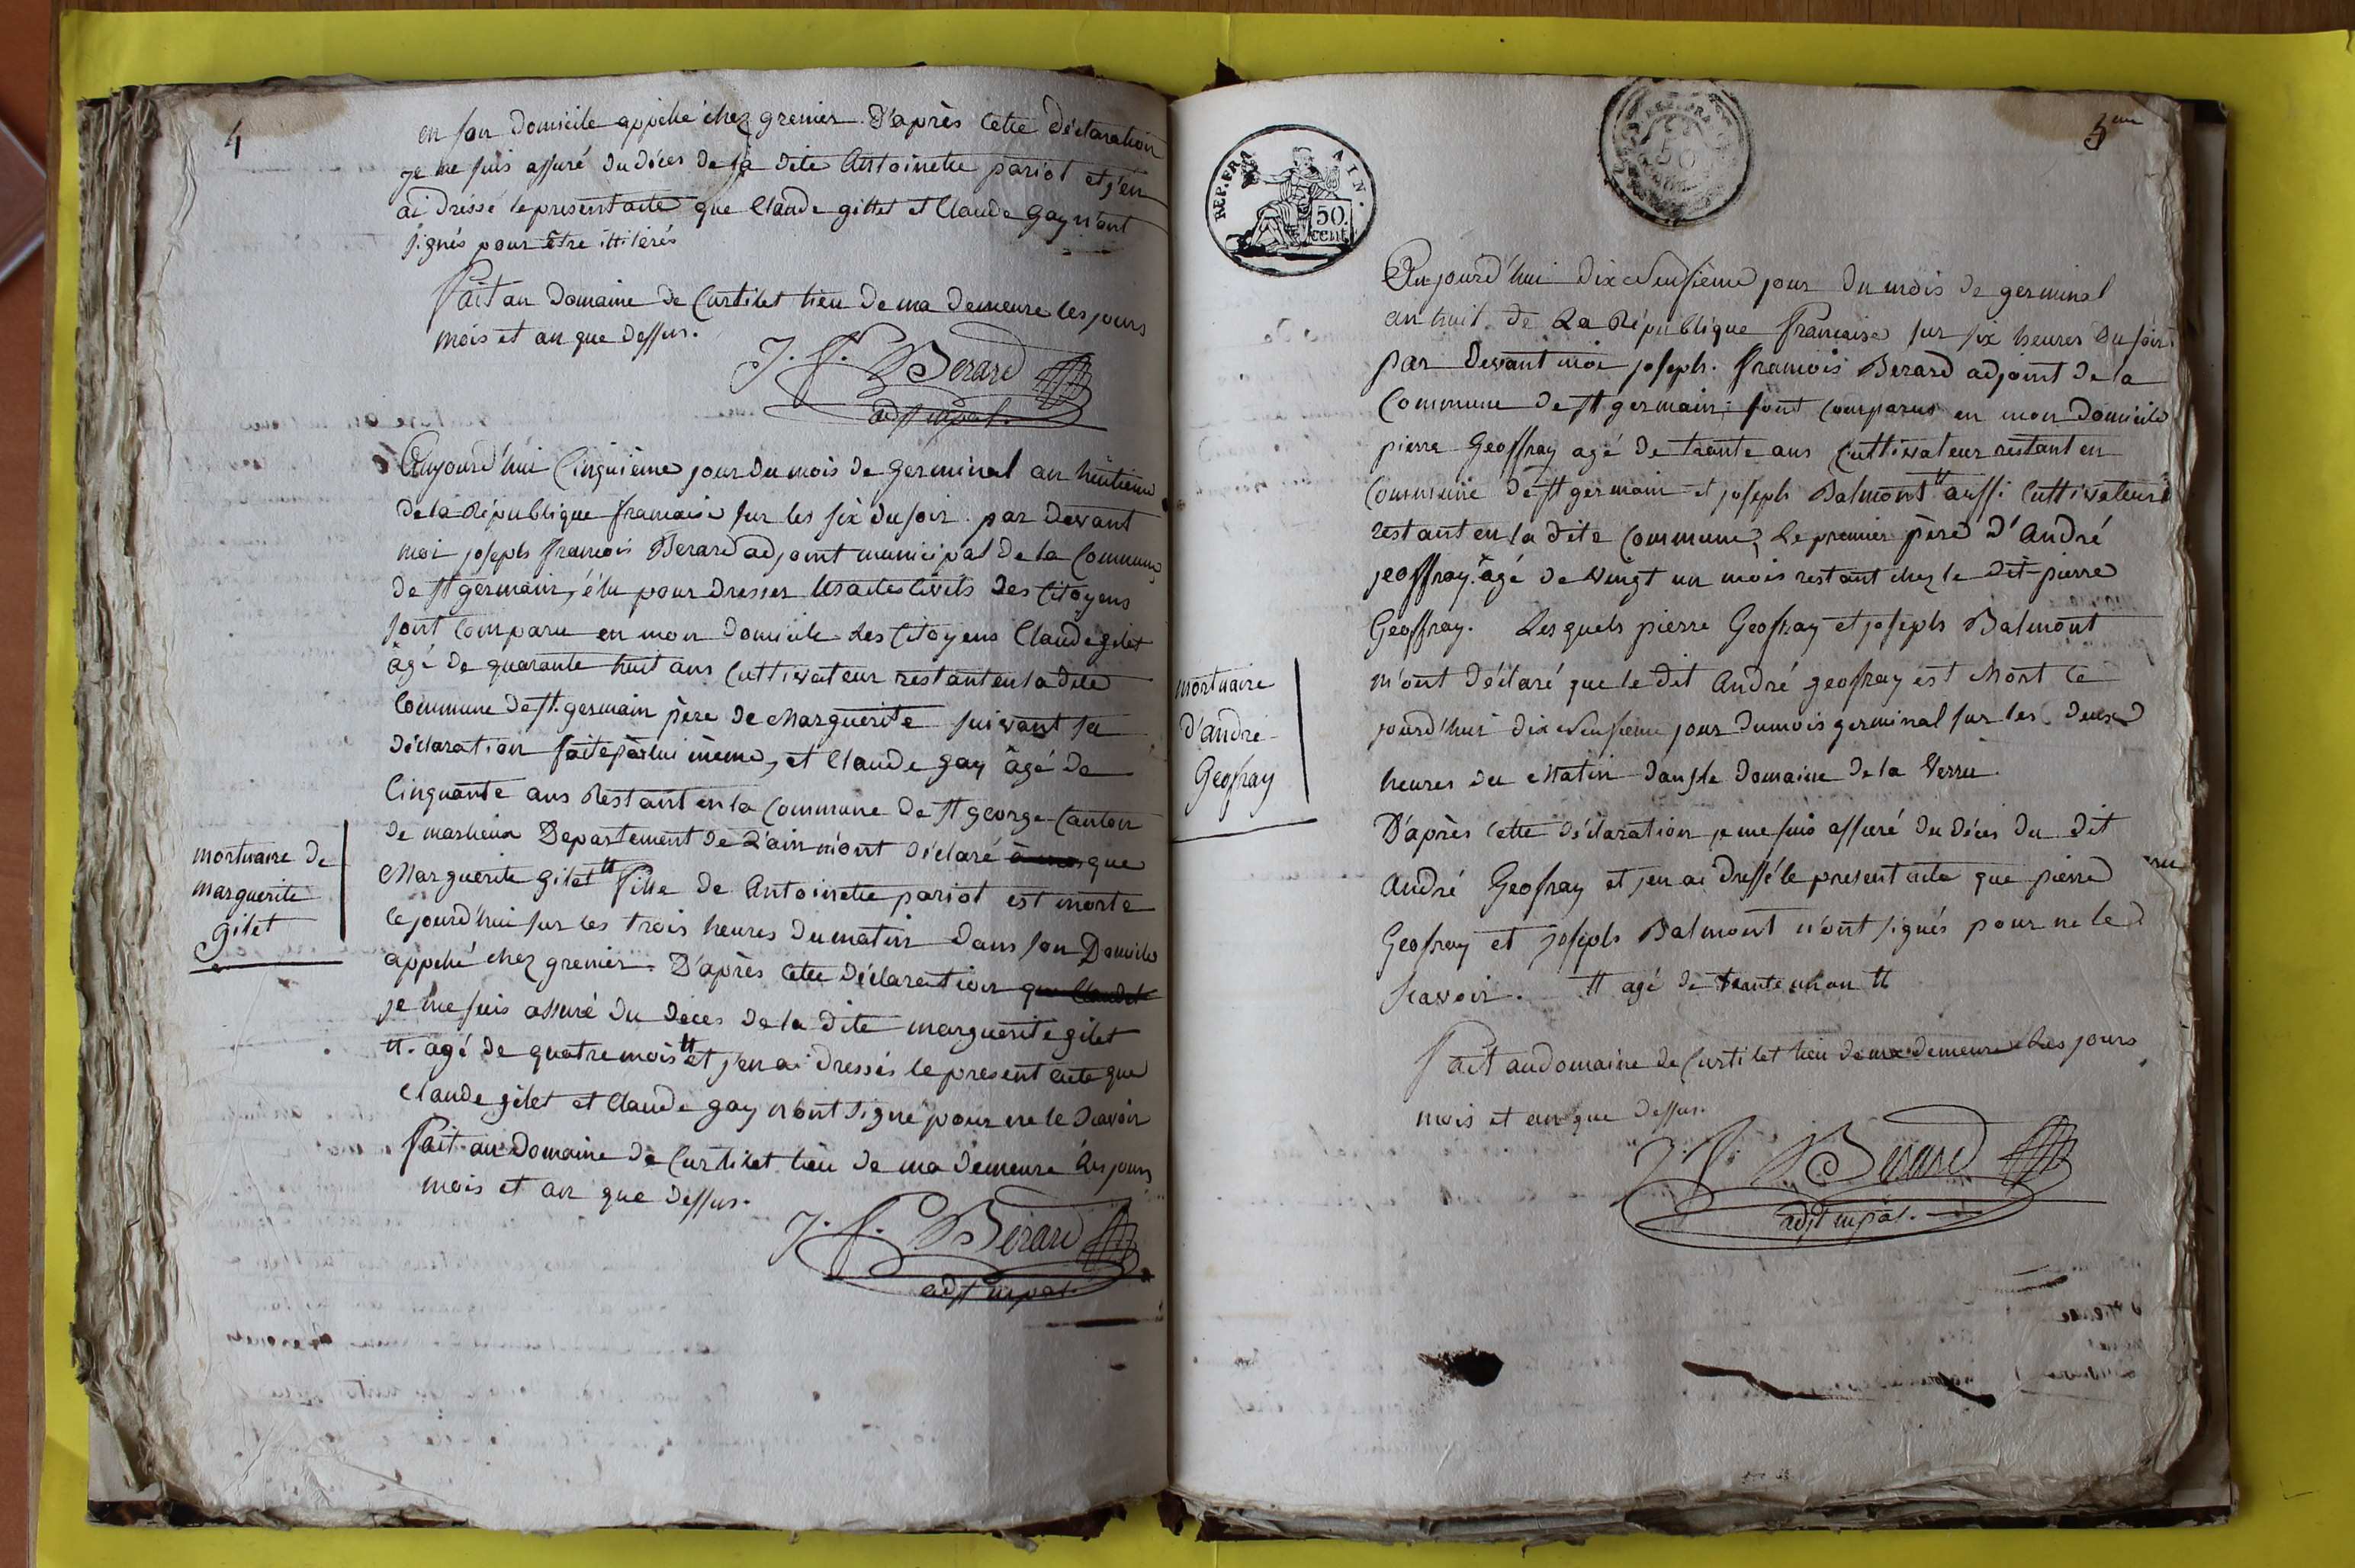 4
en son Domicile appellé chez grenier. D'après cette déclaration
je me suis assuré du déces de la dite Antoinette pariot et j'en
ai dressé le present acte que Claude gillet et Claude Gay n'ont
signés pour être illitérés
Fait au Domaine de Curtilet lieu de ma demeure les jours
mois et an que dessus.
J. f. Berard
adjt mpal.
Aujourd'hui Cinquième jour du mois de germinal an huitieme
de la République francaise sur les six du soir. par devant
moi joseph francois Berard adjoint municipal de la Commune
de st germain, élu pour dresser les actes Civils des Citoyens
sont comparu en mon domicile les Citoyens Claude gilet
âgé de quarante huit ans Cultivateur restant en la dite
Commune de st. germain père de Marguerite suivant sa
déclaration faite par lui même, et Claude gay âgé de
Cinquante ans Restant en la Commune de st george Canton
de marlieux Departement de L'ain m'ont déclaré que
Marguerite gilet tt fille de Antoinette pariot est morte
cejourd'hui sur les trois heures du matin dans son Domicile
appellé chez grenier. D'après cette déclaration que Claude
je me suis assuré du déces de la dite marguerite gilet
tt. agé de quatre mois tt et j'en ai dressés le present acte que
Claude gilet et Claude gay n'ont signé pour ne le scavoir
Fait au Domaine de Curtilet lieu de ma demeure les jours
mois et an que dessus.
J. f. Bérard
adjt mpal.
mortuaire de
marguerite
gilet
5eme
REP. FRA
AIN.
50.
cent.
Aujourd'hui dixneufsième jour du mois de germinal
an huit de La République francaise sur six heures du soir.
par devant moi joseph. francois Berard adjoint de la
Commune de st germain; sont comparus en mon domicile
pierre Geoffray agé de trente ans Cultivateur restant en
Commune de st germain et joseph Balmont tt aussi Cultivateur
restant en la dite Commune, Le premier père d'André
jeoffray. âgé de vingt un mois restant chez le dit pierre
Geoffray. Lesquels pierre Geofray et joseph Balmont
m'ont déclaré que le dit André geofray est Mort ce
jourd'hui dixneufsieme jour du mois germinal sur les deux
heures du Matin dans le domaine de la Verru.
D'après cette déclaration je me suis assuré du déces du dit
André Geofray et j'en ai dressé le present acte que pierre
Geofray et joseph Balmont n'ont signés pour ne le
scavoir. tt agé de trante un an tt
Fait au domaine de Curtilet lieu de ma demeure Les jours
mois et an que dessus.
J. f. Berard
adjt mpal.
mortuaire
d'andré
Geofray